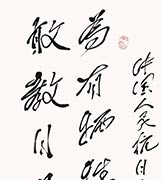 国人民抗日
為有牺牲
敢教日月